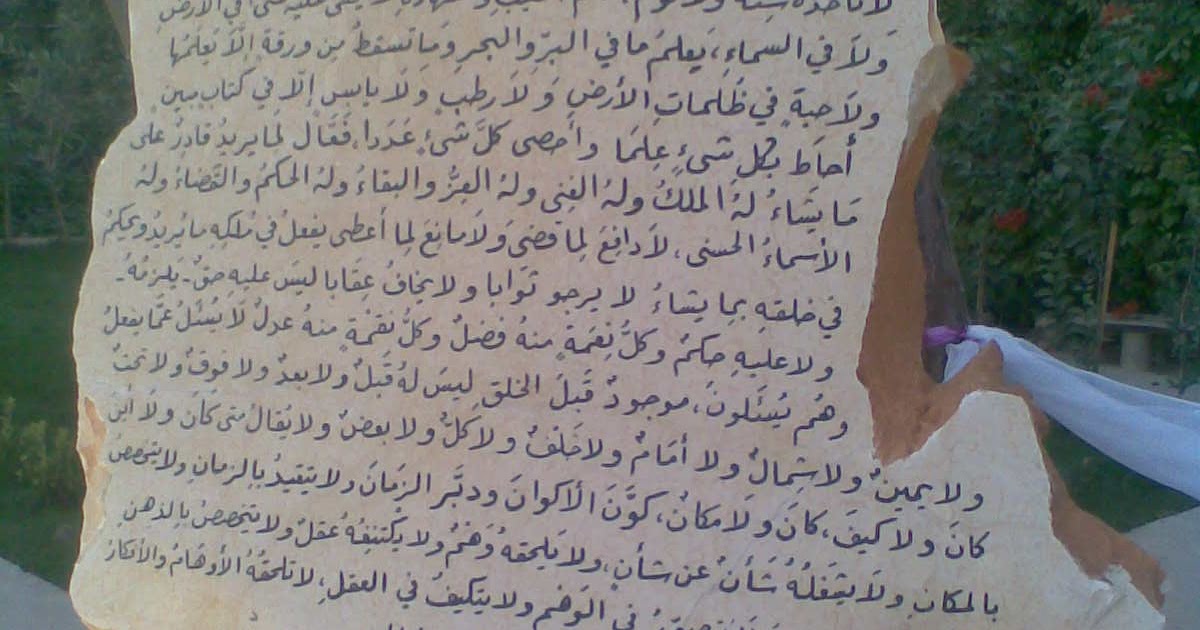 لا تأخذه سنة ولا نوم، في الأرضِ
ولاَ في السماءِ، يَعلمُ ما في البرِّ والبحرِ وَما تسقطُ مِن ورقةٍ إلَّا يَعلمُها
ولاَ حبةٍ في ظُلماتِ الأرضِ وَلاَ رطبٍ ولاَ يابسٍ إلّا في كتابٍ مبينٍ
أحاطَ بكلِ شيءٍ عِلمَا وأحصى كلَّ شيءٍ عَدَدا، فَعَّال لما يريدُ قادرٌ على
مَا يشاءُ لهُ الملكُ ولهُ الغِنى ولهُ العِزُّ والبقاءُ ولهُ الحكمُ والقضاءُ ولهُ
الأسماءُ الحسنى، لاَ دافِعَ لما قضى وَلاَ مانِعَ لما أعطى يفعلُ في مُلكِهِ ما يُريدُ ويحكمُ
في خلقهِ بما يشاءُ لا يرجو ثَوابا ولا يخافُ عِقابا ليسَ عليهِ حقٌ يَلزمُهُ
ولا عليهِ حكمٌ وكلُّ نِعْمَةٍ منهُ فضلٌ وكلُّ نقْمَةٍ منهُ عدلٌ لاَ يُسْئلُ عَمَّا يفعلُ
وهُم يُسئلونَ، موجودٌ قَبلَ الخلقِ ليسَ لهُ قَبلٌ ولا بعدٌ ولا فوقٌ ولا تحتٌ
ولا يمينٌ ولا شِمالٌ ولا أمَامٌ ولا خَلفٌ ولا كلٌّ ولا بعضٌ ولا يُقالُ متى كَانَ ولا أينَ
كانَ ولا كيفَ، كانَ ولاَ مكانٌ، كوَّنَ الأكوانَ ودبَّر الزمَانَ ولا يتقيدُ بالزمانِ ولا يتخصصُ
بالمكانِ ولاَ يشغلُهُ شَأنٌ عن شأنٍ، ولا يَلحقهُ وَهْمٌ ولا يكتنِفهُ عقلٌ ولا يتخصصُ بالذهنِ
في الوَهمِ ولا يتكيفُ في العقلِ، لا تلحقهُ الأوهامُ والأفكارُ